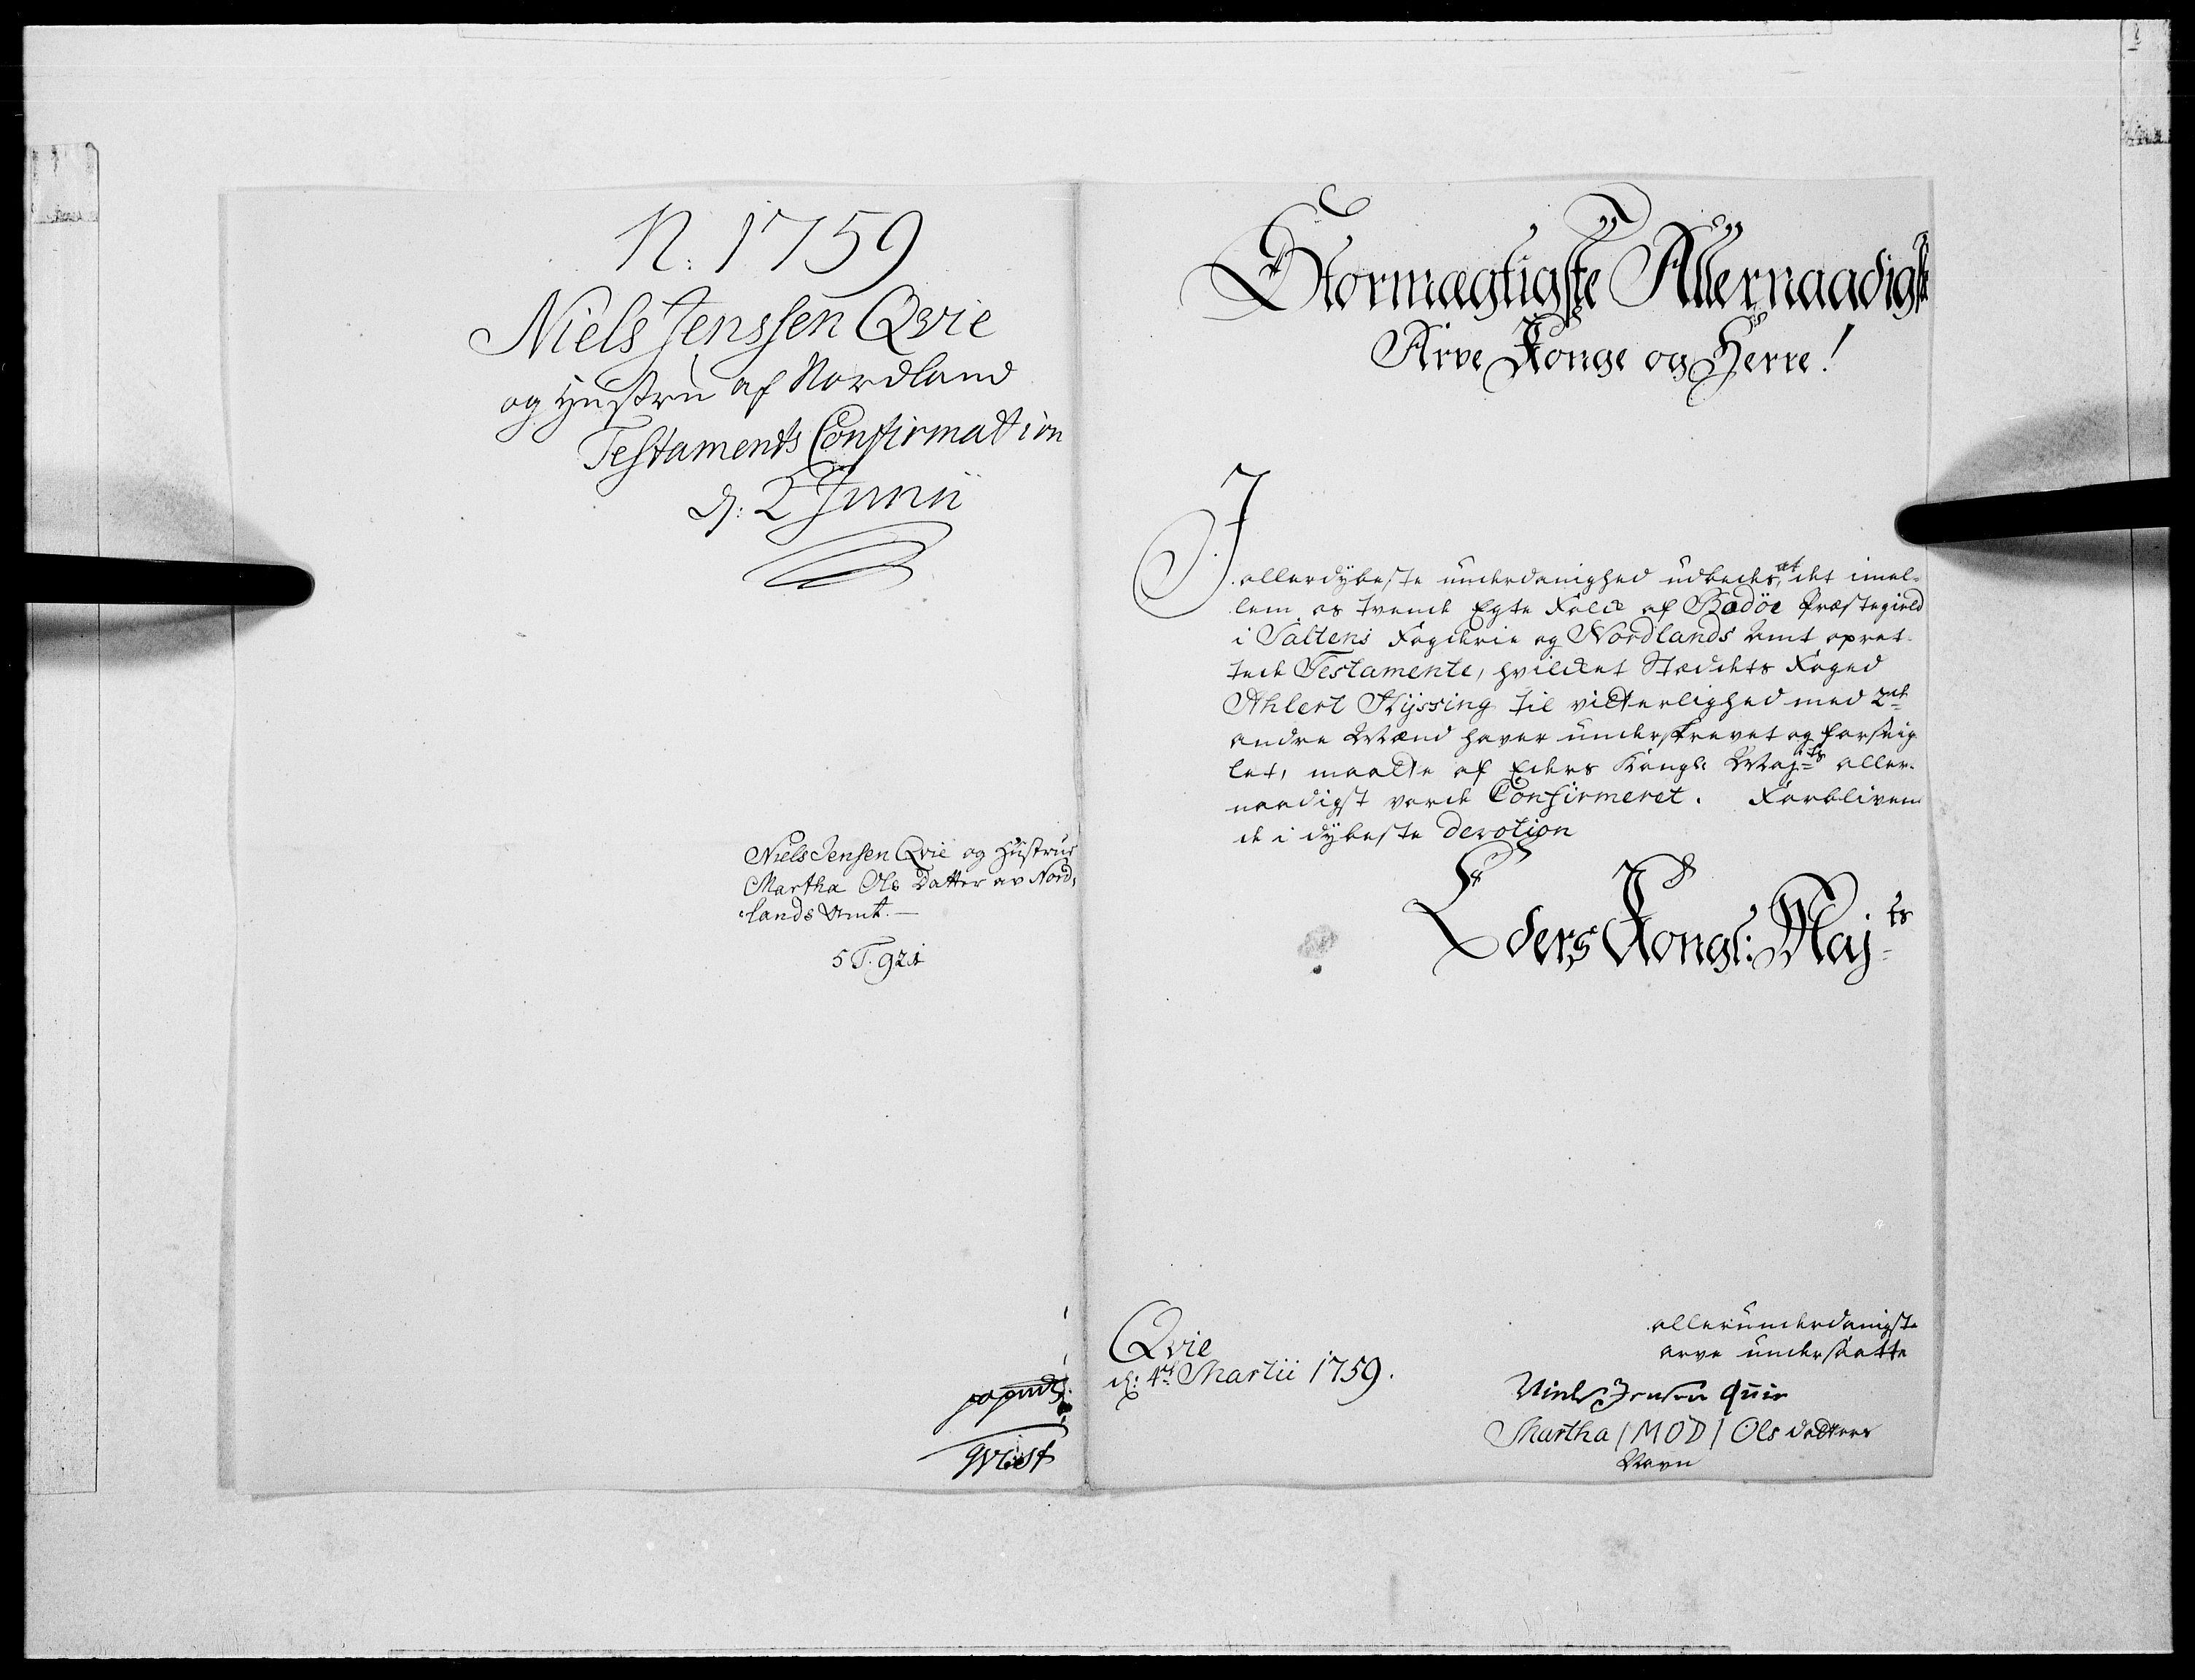 N. 1759
Niels Jenssen Qvie
og Hustru af Nordland
Testaments Confirmation
d: 2 Junii
Niels Jensen Qvie og Hustrue
Martha Ols Datter av Nord,
lands Amt. —
5 T. 921
Stormægtigste Allernaadigste
Arve Konge og Herre!
I
allerdybeste underdanighed udbedes, at det imel-
lem os tvende Egte Folck af Bodöe Præstegield
i Saltens Fogderie og Nordlands Amt opret-
tede Testamente, hvilcket Stædets Foged
Ahlert Hÿssing til vitterlighed med 2de
andre Mænd haver underskrevet og forseig
let, maatte af Eders Kongl: Maj:ts aller-
naadigst vorde Confirmeret. Forbliven
de i dÿbeste devotion
Eders Kongl: Maj:ts
allerunderdanigste
arve undersaatte
Qvie
d: 4de Martii 1759.
Niels Jensen Qvie
Martha / MOD / Ols datters
Navn